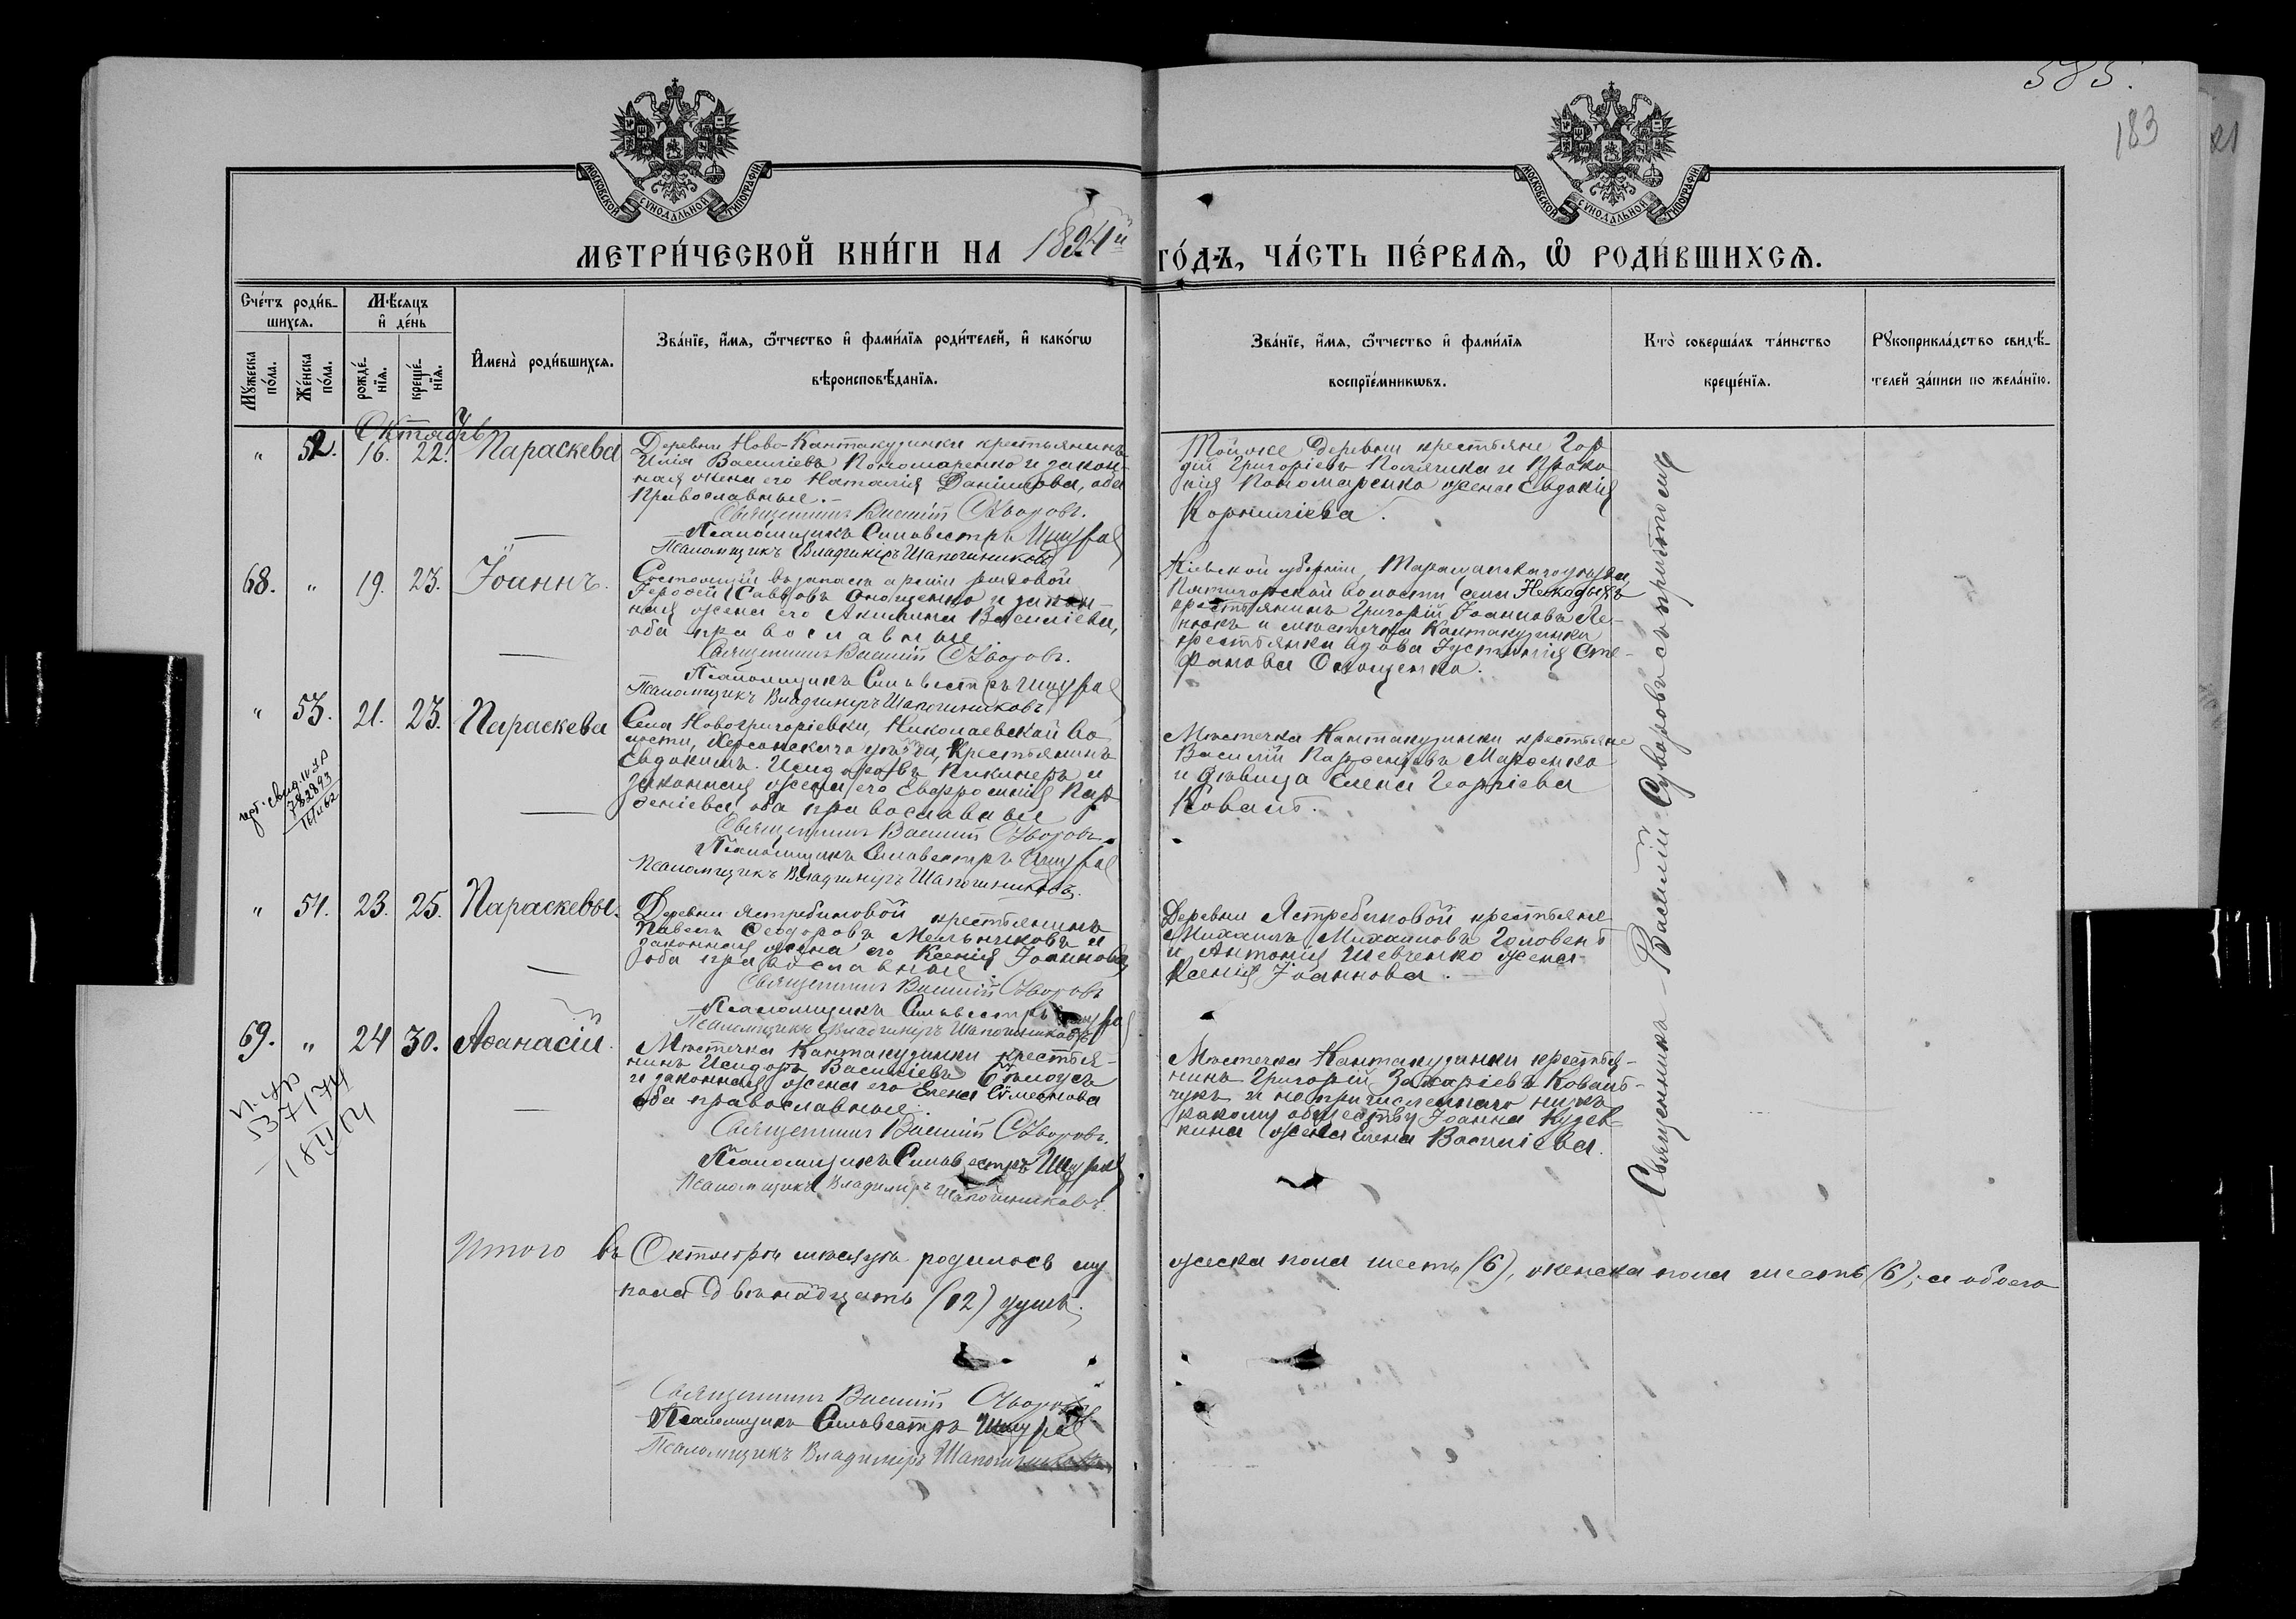 585.
183
21
МОСКОВСКОЙ СѴНОДАЛЬНОЙ ТИПОГРАФІИ
МОСКОВСКОЙ СѴНОДАЛЬНОЙ ТИПОГРАФІИ
МЕТРИ́ЧЕСКОЙ КНИ́ГИ НА 1894й ГО́ДЪ, ЧА́СТЬ ПЕ́РВАѦ, Ѡ РОДИ́ВШИХСѦ.
Сче́тъ роди́в-
шихсѧ.
Мѣ́сяцъ
и де́нь
Мꙋ́жеска
по́ла.
Же́нска
по́ла.
рожде́-
нїѧ.
креще́-
нїѧ.
Имена̀ роди́вшихсѧ.
Зва́нїе, и́мѧ, ѿтчество и фами́лїѧ роди́телей, и како́гѡ
вѣроисповѣ́данїѧ.
Зва́нїе, и́мѧ, ѿтчество и фами́лїѧ
воспрїе́мникѡвъ.
Кто̀ соверша́лъ та́инство
креще́нїѧ.
Рꙋкоприкла́дство свидѣ́-
телей за́писи по жела́нїю.
Октябрь
" 52. 16. 22. Параскева
Деревни Ново-Кантакузинки крестьянинъ
Илія Василіевъ Пономаренко и закон-
ная жена его Наталія Даніилова, оба
Православные.-
Священникъ Василій Суворовъ.
Псаломщикъ Сильвестръ
Псаломщикъ Владиміръ Шапошниковъ
Тойже деревни крестьяне Гор-
дій Григоріевъ и Проко-
пія Пономаренко жена Евдокія
Корниліева.
68. " 19. 23. Іоаннъ.
Состоящій въ запасѣ арміи рядовой
Іероѳей Саввовъ Онощенко и закон-
ная жена его Акилина Василіева,
оба православные.
Священникъ Василій Суворовъ.
Псаломщикъ Сильвестръ
Псаломщикъ Владимиръ Шапошниковъ
Кіевской губерніи, Таращанскаго уѣзда,
Пятигорской волости села
крестьянинъ Григорій Іоанновъ Ле-
нюкъ и мѣстечка Кантакузинки
крестьянка вдова Іустинія Сте-
фанова Онощенко.
" 53. 21. 23. Параскева
Села Новогригоріевки, Николаевской во-
лости, Херсонскаго уѣзда, крестьянинъ
Евдокимъ Исидоровъ Кикинеръ и
законная жена его Евфросинія Пар-
ѳеніева, оба православные
Священникъ Василій Суворовъ.
Псаломщикъ Сильвестръ
Псаломщикъ Владимиръ Шапошниковъ.
Мѣстечка Кантакузинки крестьяне
Василій Парѳеніевъ Марченко
и дѣвица Елена Георгіева
Коваль.
782893
" 54. 23. 25. Параскева.
Деревни Ястребиновой крестьянинъ
Павелъ Ѳеодоровъ Мельниковъ и
законная жена его Ксенія Іоаннова,
оба православные.
Священникъ Василій Суворовъ
Псаломщикъ Сильвестръ
Псаломщикъ Владимиръ Шапошниковъ
Деревни Ястребиновой крестьяне
Михаилъ Михаиловъ Головень
и Антонія Шевченко жена
Ксенія Іоаннова.
69. " 24 30. Аѳанасій.
Мѣстечка Кантакузинки крестья-
нинъ Исидоръ Василіевъ Бѣлоусъ
и законная жена его Елена Сѵмеонова
оба православные.
Священникъ Василій Суворовъ.
Псаломщикъ Сильвестръ
Псаломщикъ Владимиръ Шапошниковъ.
Мѣстечка Кантакузинки крестья-
нинъ Григорій Захаріевъ Коваль-
чукъ и не причисленнаго ни къ
какому обществу Іоанна
жена Елена Василіева.
537174
18 II 64
Священникъ Василій Суворовъ съ причтомъ
Итого въ Октябрѣ мѣсяцѣ родилось мужеска пола шесть (6), женска пола шесть (6), а обоего
пола двѣнадцать (12) душъ.
Священникъ Василій Суворовъ
Псаломщикъ Сильвестръ
Псаломщикъ Владиміръ Шапошниковъ